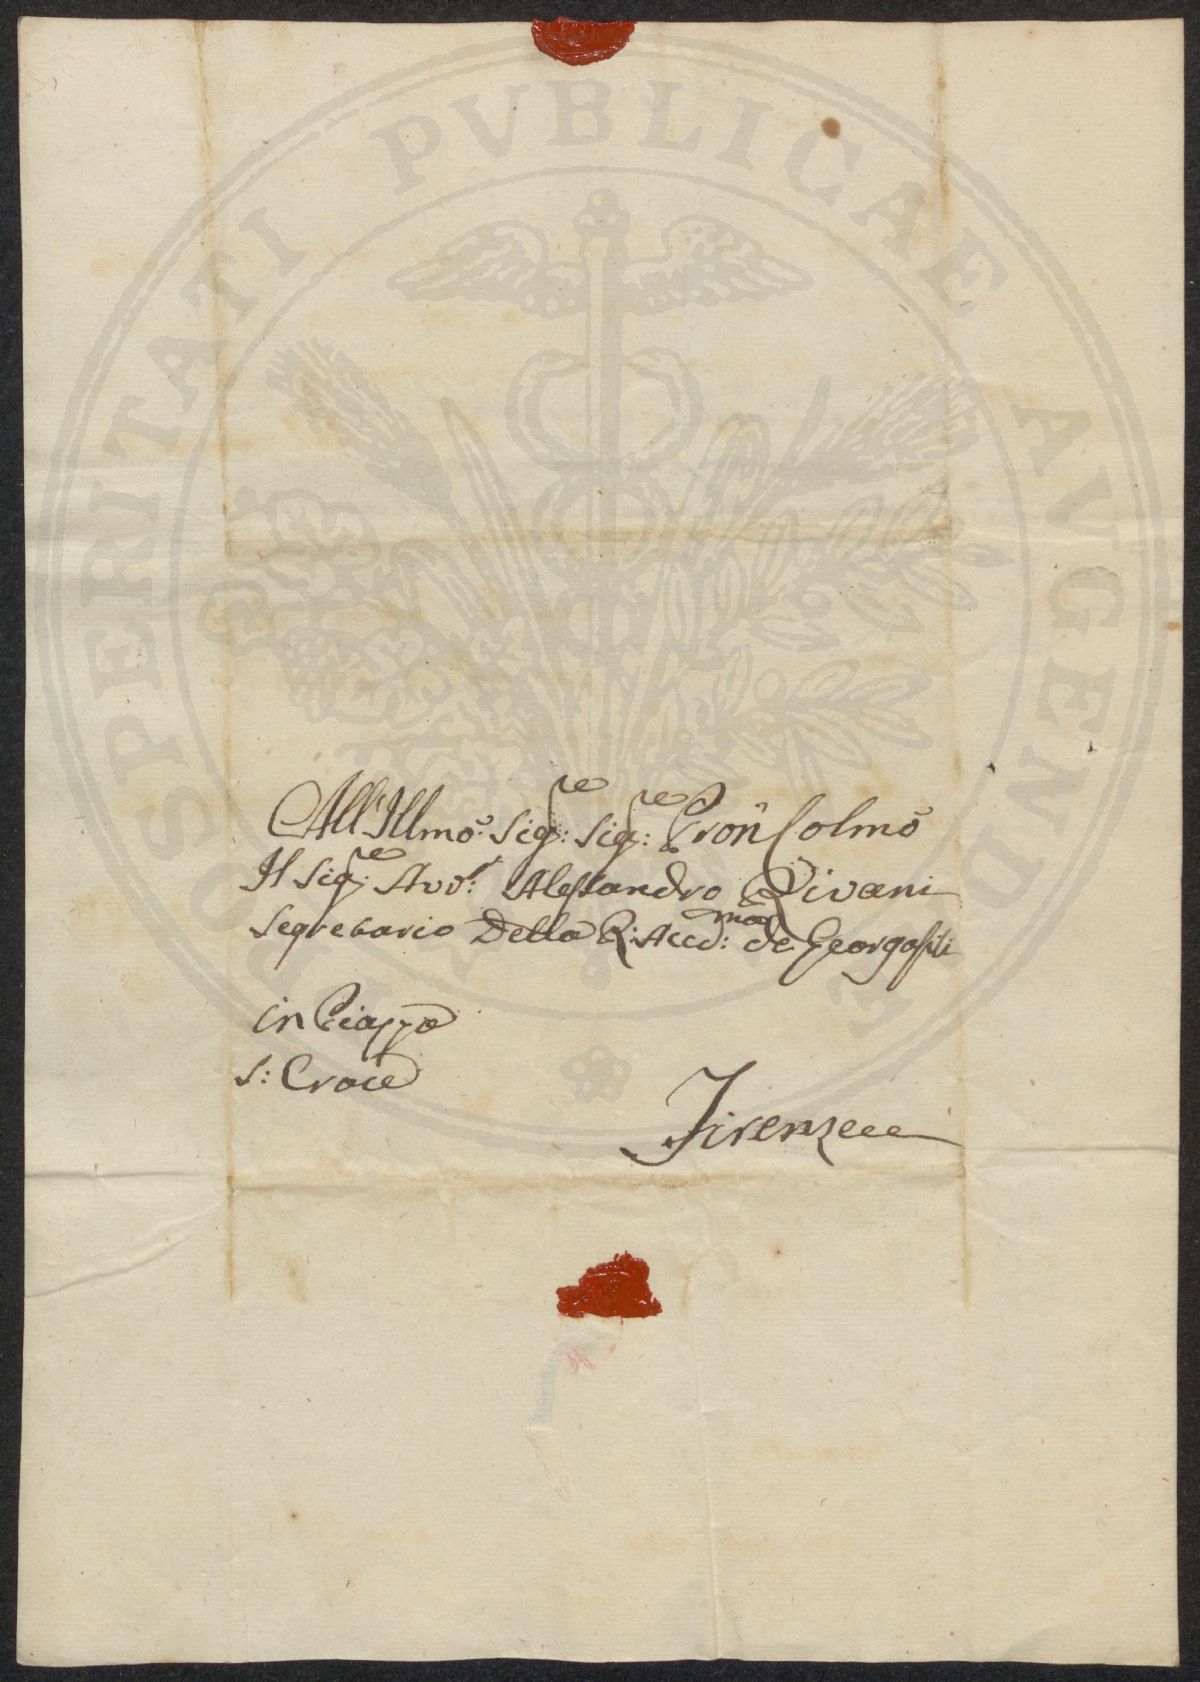 PROSPERITATI PVBLICAE AVGENDAE
All'Illmo: Sig:re Sig:re Pron Colmo
Il Sig:re Avv:t Alessandro Rivani
Segretario Della R: Accd:ma de Georgofili
in Piazza
S: Croce
Firenzeee